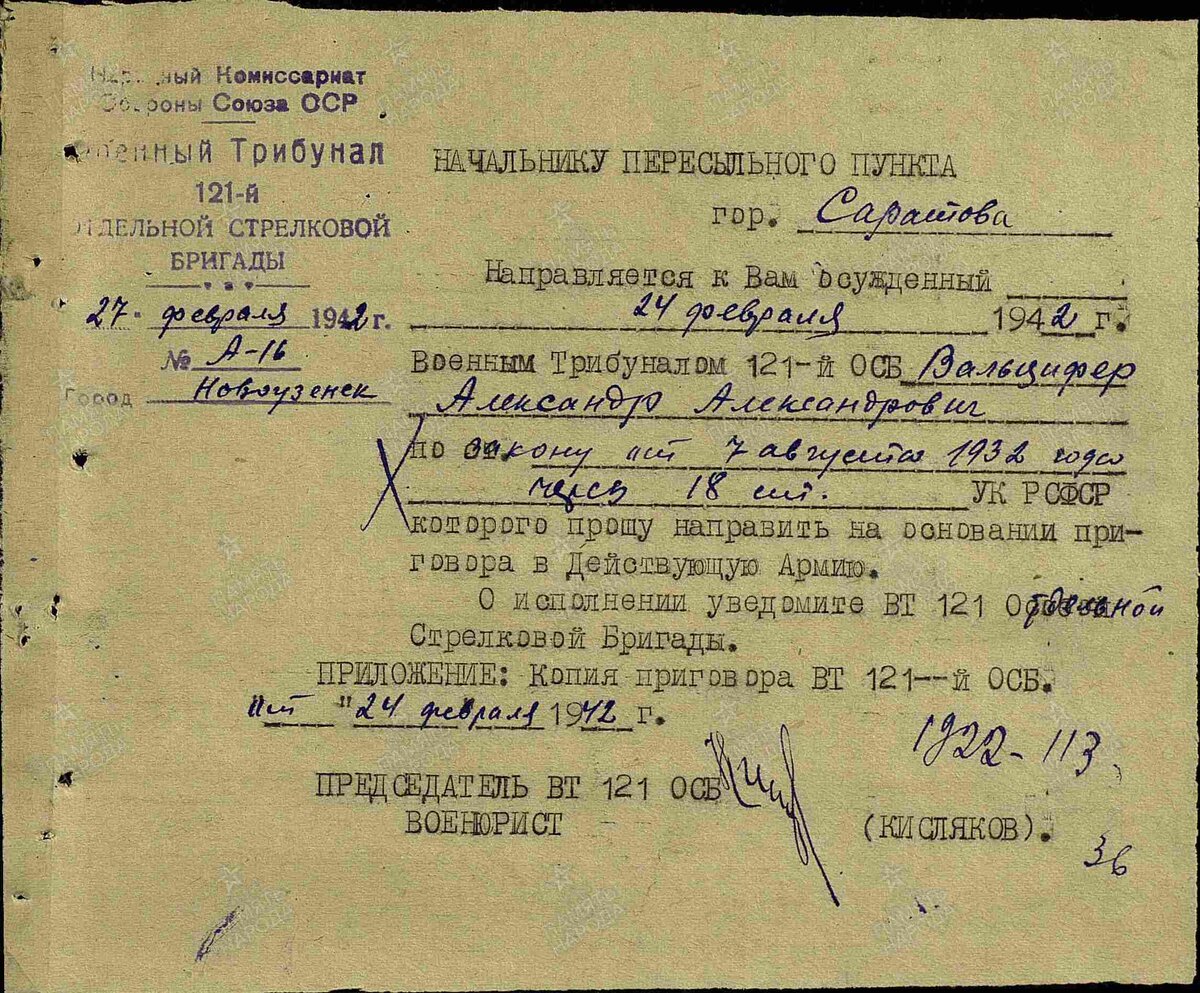 Народный Комиссариат
Обороны Союза ССР
Военный Трибунал
121-й
ОТДЕЛЬНОЙ СТРЕЛКОВОЙ
БРИГАДЫ
27 февраля 1942 г.
№ А-16
Город Новоузенск
НАЧАЛЬНИКУ ПЕРЕСЫЛЬНОГО ПУНКТА
гор. Саратова
Направляется к Вам осужденный
24 февраля 1942 г.
Военным Трибуналом 121-й ОСБ Вальцифер
Александр Александрович
по закону от 7 августа 1932 года
через 18 ст. УК РСФСР
которого прошу направить на основании при-
говора в Действующую Армию.
О исполнении уведомите ВТ 121 Отдельной
Стрелковой Бригады.
ПРИЛОЖЕНИЕ: Копия приговора ВТ 121--й ОСБ.
"от " 24 февраля 1942 г.
1922-113.
ПРЕДСЕДАТЕЛЬ ВТ 121 ОСБ
ВОЕНЮРИСТ (КИСЛЯКОВ).
36
ПАМЯТЬ НАРОДА